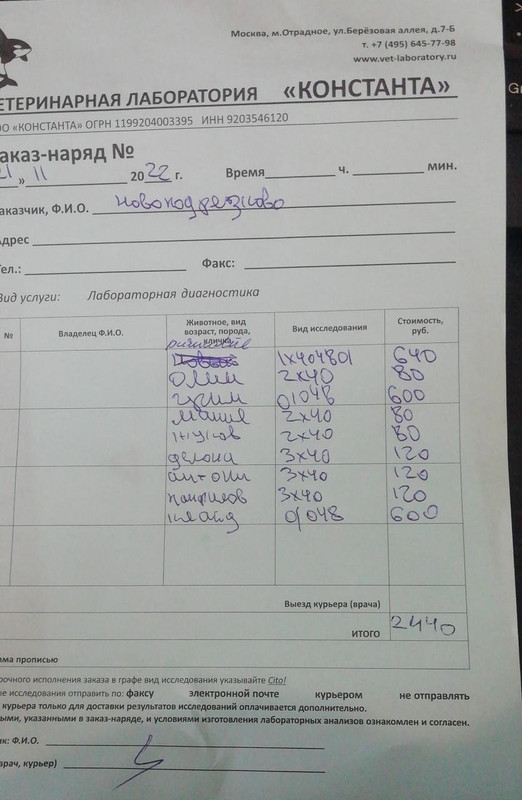 Москва, м.Отрадное, ул.Берёзовая аллея, д.7-Б
т. +7 (495) 645-77-98
www.vet-laboratory.ru
ЕТЕРИНАРНАЯ ЛАБОРАТОРИЯ «КОНСТАНТА»
ОО «КОНСТАНТА» ОГРН 1199204003395 ИНН 9203546120
аказ-наряд №
21 » 11 2022 г. Время ч. мин.
аказчик, Ф.И.О. Новоподрезково
Адрес
Тел.: Факс:
Вид услуги: Лабораторная диагностика
№ Владелец Ф.И.О. Животное, вид возраст, порода, кличка Вид исследования Стоимость, руб.
1х40 4801 640
2х40 80
01048 600
2х40 80
2х40 80
3х40 120
антони 3х40 120
панфилов 3х40 120
клайд 01048 600
Выезд курьера (врача)
ИТОГО 2440
ма прописью
рочного исполнения заказа в графе вид исследования указывайте Cito!
ые исследования отправить по: факсу электронной почте курьером не отправлять
курьера только для доставки результатов исследований оплачивается дополнительно.
ыми, указанными в заказ-наряде, и условиями изготовления лабораторных анализов ознакомлен и согласен.
ик: Ф.И.О.
врач, курьер)